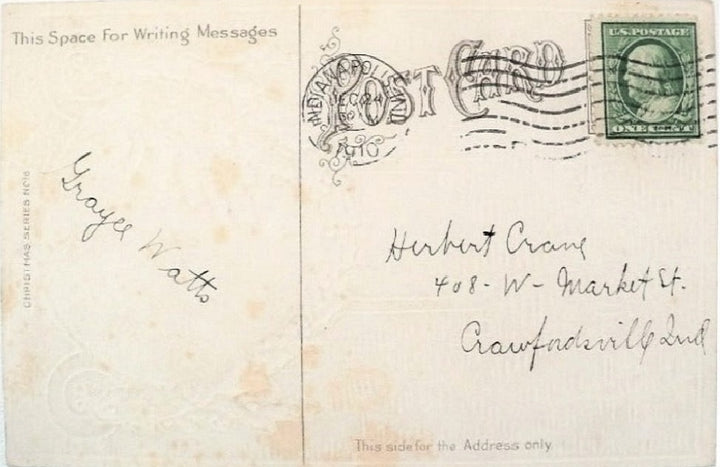 This Space For Writing Messages
POST CARD
INDIANAPOLIS, IND.
DEC 24
1910
U.S. POSTAGE
ONE CENT
CHRISTMAS SERIES NO
Grayce Watts
Herbert Crane
408 - W - Market St.
Crawfordsville Ind
This side for the Address only.